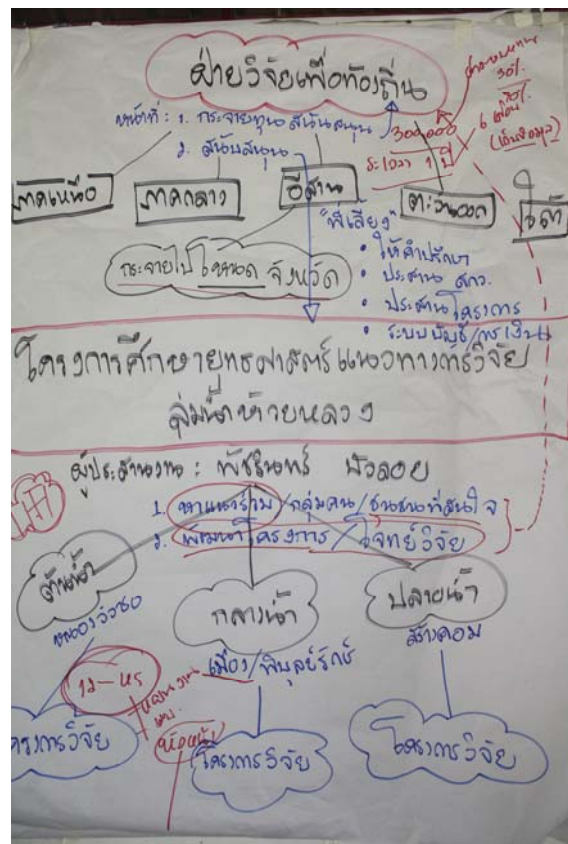 ฝ่ายวิจัยเพื่อท้องถิ่น
หน้าที่ : 1. กระจายทุน สนับสนุน
2. สนับสนุน
300,000
ระยะเวลา 1 ปี
30%
70%
6 เดือน
(เก็บข้อมูล)
ภาคเหนือ
ภาคกลาง
อีสาน
ตะวันออก
ใต้
"พี่เลี้ยง"
• ให้คำปรึกษา
• ประสาน สกว.
• ประสานโครงการ
• ระบบบัญชี/การเงิน
กระจายไปโหนด จังหวัด
โครงการศึกษายุทธศาสตร์แนวทางการวิจัย
ลุ่มน้ำห้วยหลวง
ผู้ประสานงาน : พัชรินทร์ บัวลอย
1. หาแนวร่วม/กลุ่มคน/ชุมชนที่สนใจ
2. พัฒนาโครงการ/โจทย์วิจัย
ต้นน้ำ
หนองวัวซอ
กลางน้ำ
เมือง/พิบูลย์รักษ์
ปลายน้ำ
สร้างคอม
โครงการวิจัย
โครงการวิจัย
โครงการวิจัย